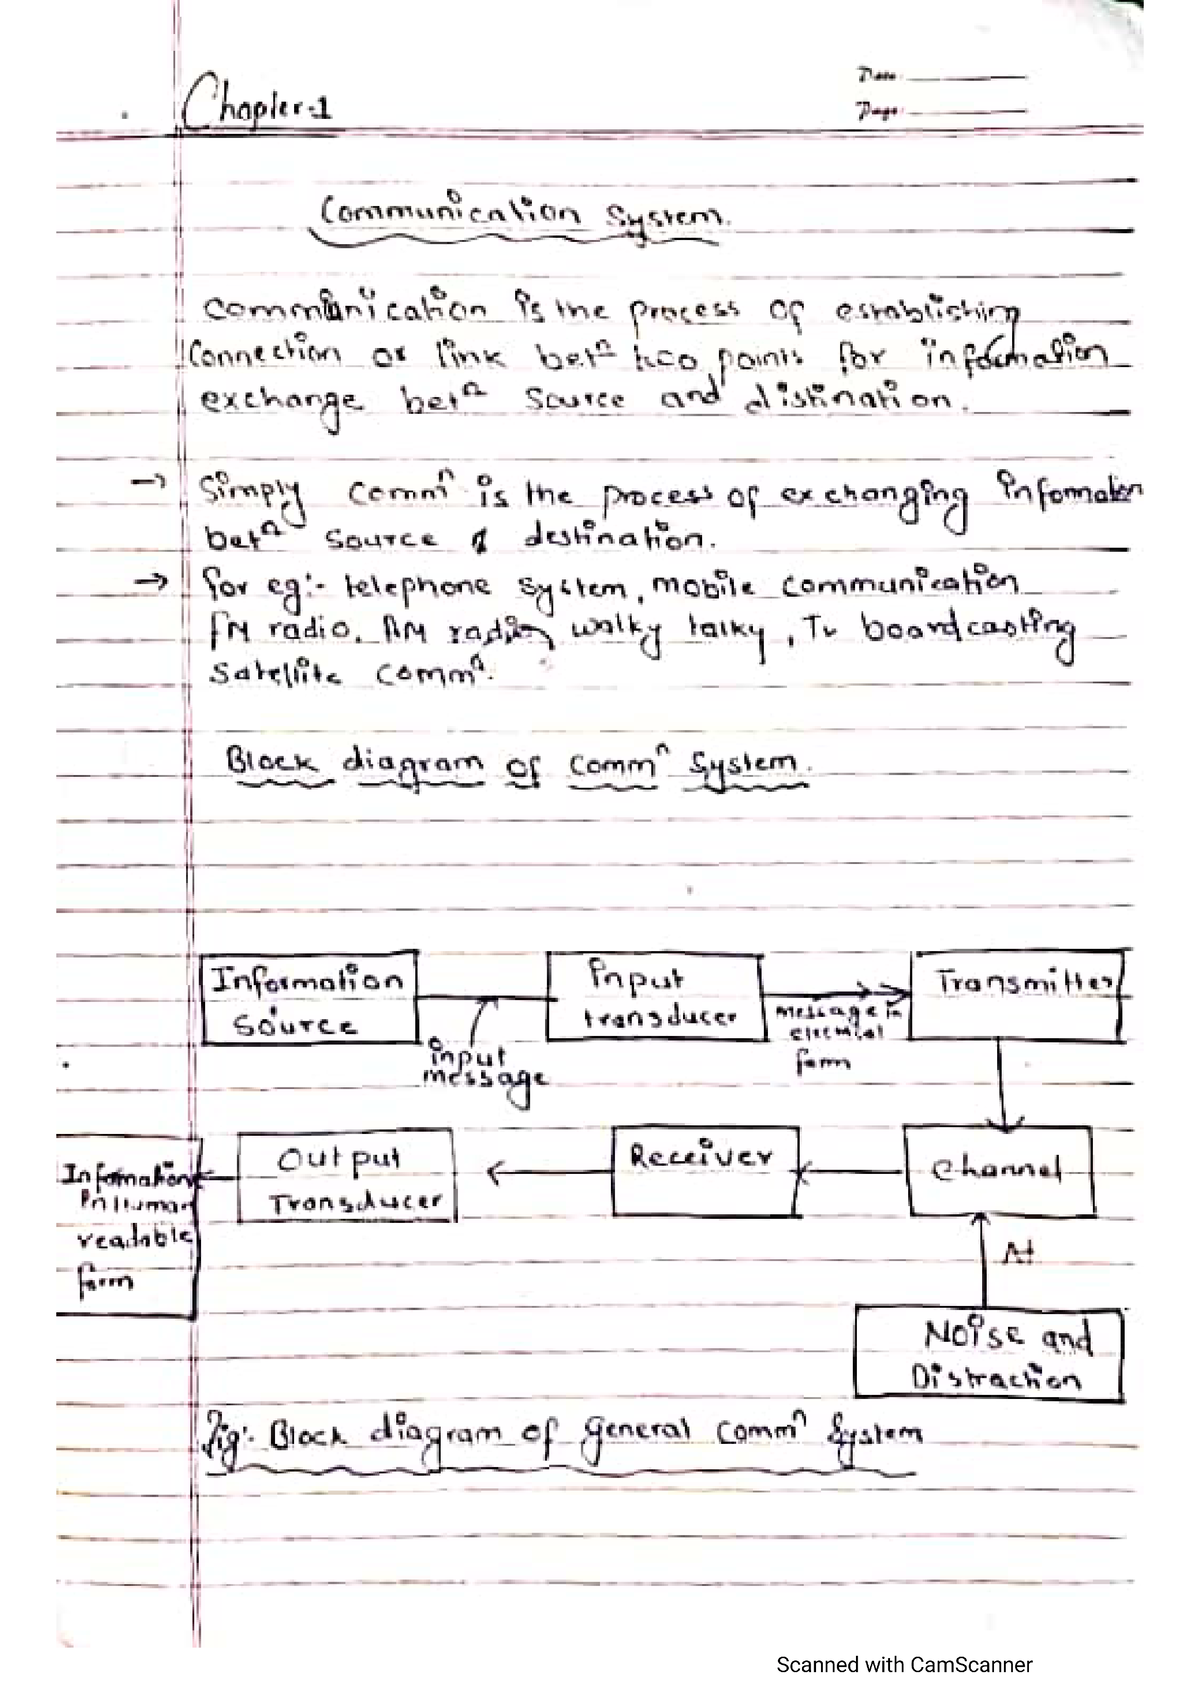 Date:
Page:
Chapter-1
Communication System.
Communication is the process of establishing
Connection or link betⁿ two points for information
exchange betⁿ source and distination.
→ Simply commⁿ is the process of exchanging infomation
betⁿ source & destination.
→ for eg:- telephone system, mobile communication
FM radio, AM radio, walky talky, Tv boardcasting
Satellite commⁿ.
Block diagram of commⁿ System.
Information
Source
input
message
Input
transducer
message in
electrical
form
Transmitter
Channel
Receiver
Output
Transducer
Infomation
in Human
readable
form
Noise and
Distraction
fig:- Block diagram of general commⁿ System
Scanned with CamScanner